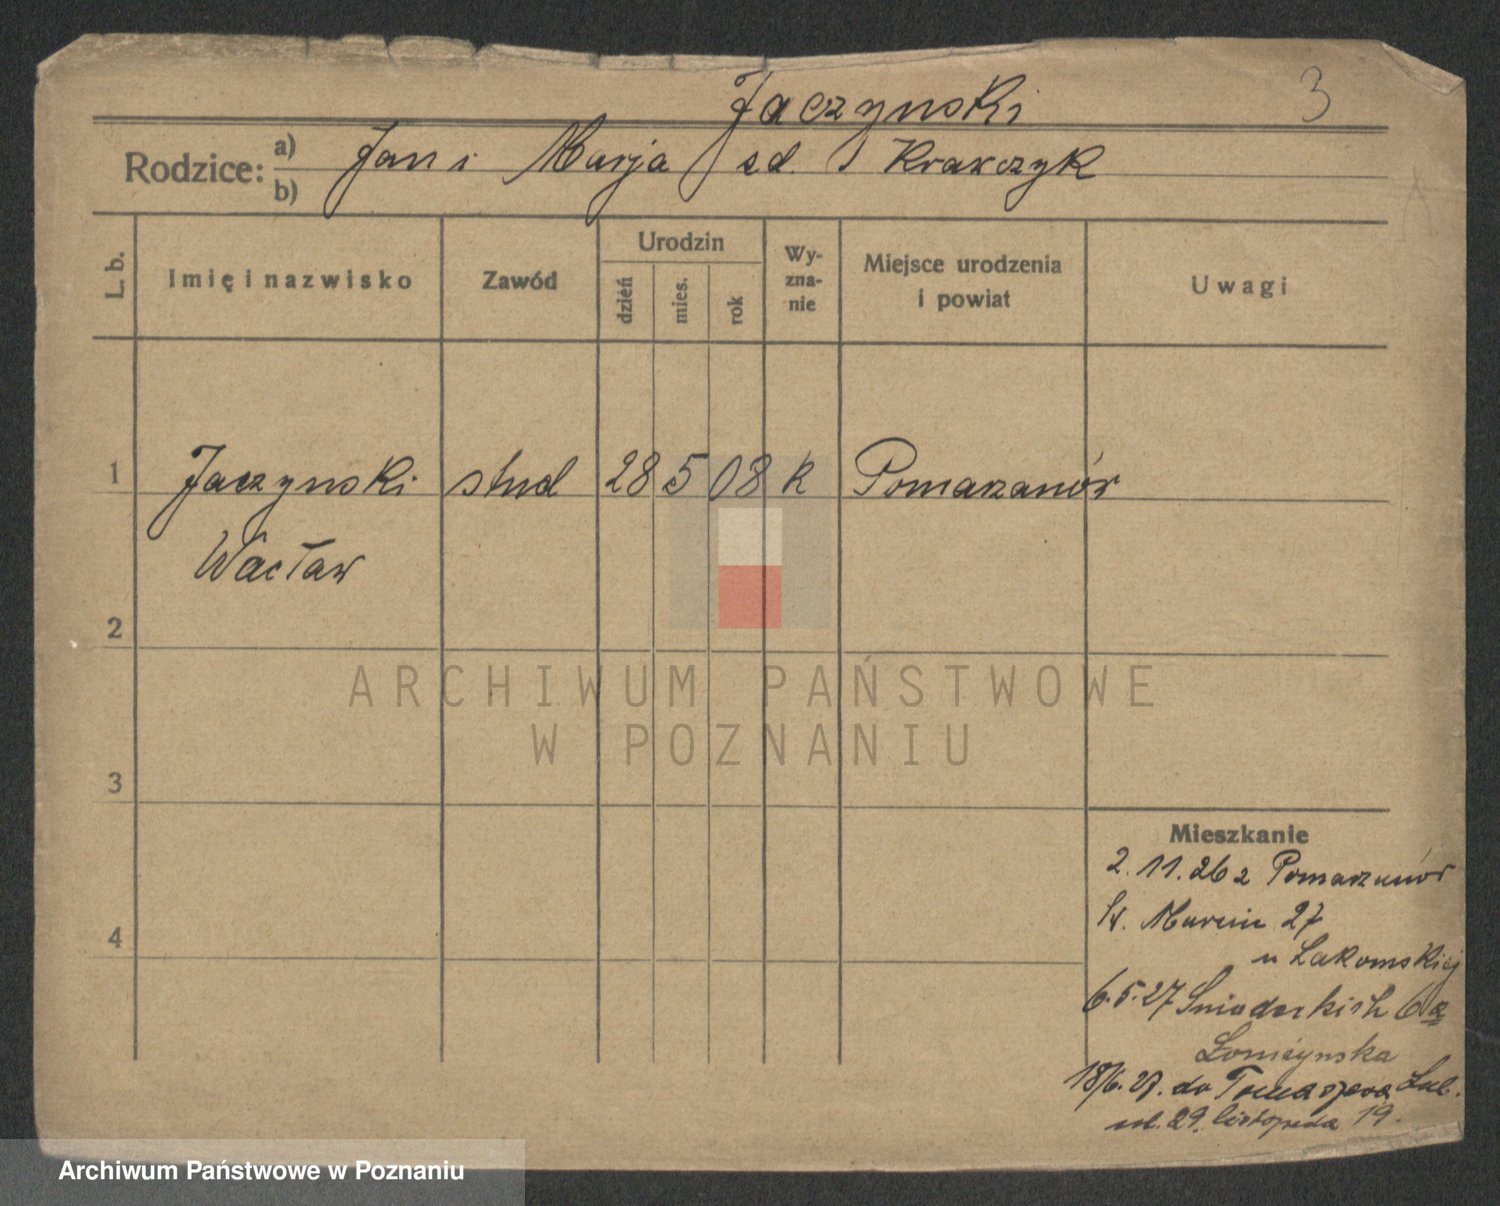 Jaczynski
3
Rodzice: a) Jan i Marja zd. Krawczyk
b)
L. b.
Imię i nazwisko
Zawód
Urodzin
dzień
mies.
rok
Wy-
zna-
nie
Miejsce urodzenia
i powiat
Uwagi
1 Jaczynski stud 28 5 08 k Pomarzanów
Wacław
2
3
4
ARCHIWUM PAŃSTWOWE
W POZNANIU
Mieszkanie
2.11.26 z Pomarzanów
Św. Marcin 27
u Łakomskiej
6.5.27 Śniadeckich 6a
Łomżynska
18/6.27. do Tomaszowa Lub.
ul. 29 listopada 19.
Archiwum Państwowe w Poznaniu